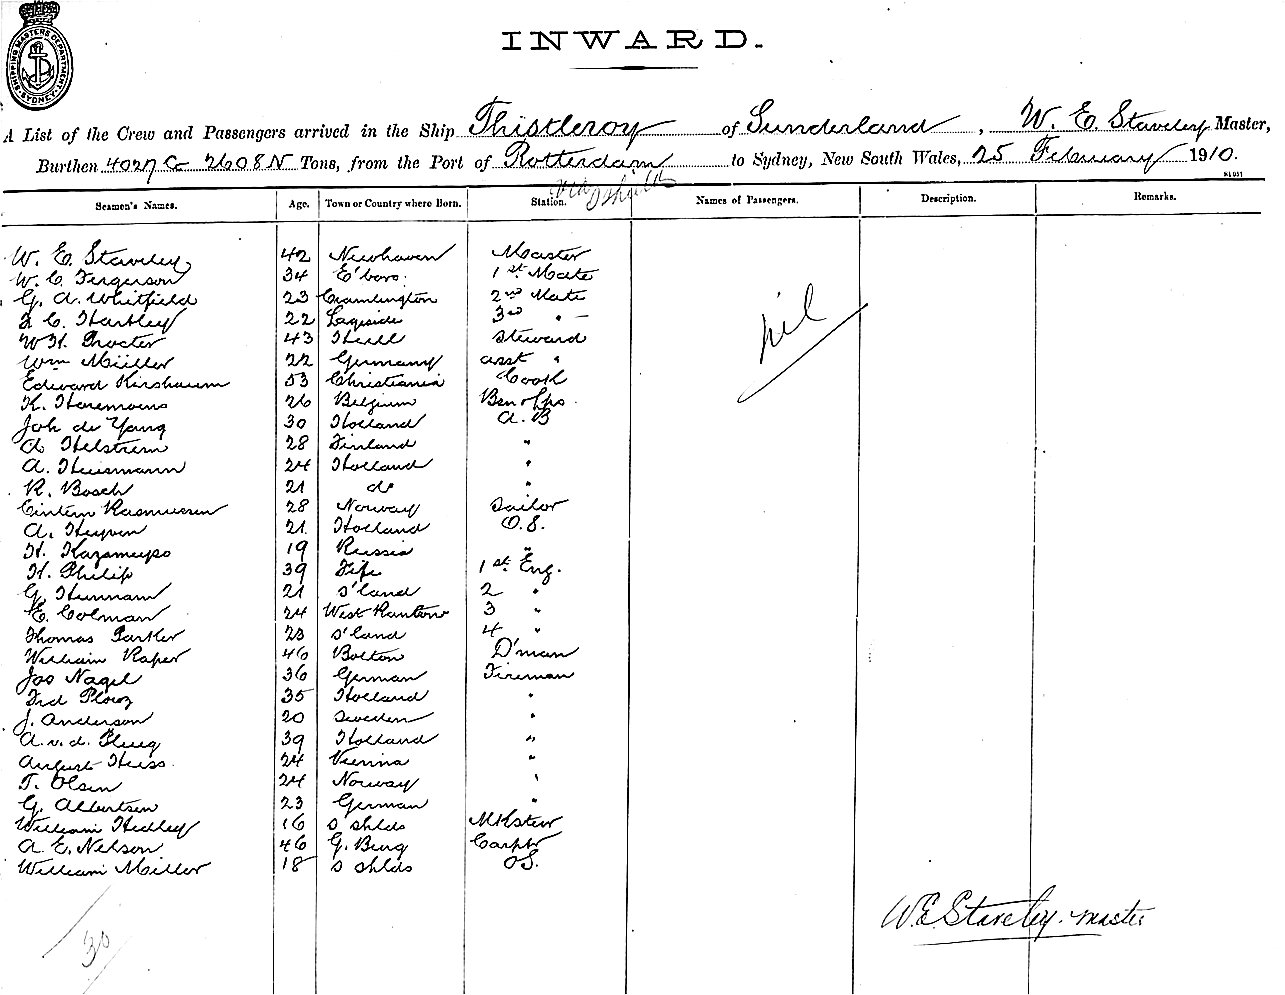 SHIPPING MASTERS DEPARTMENT SYDNEY
INWARD.
A List of the Crew and Passengers arrived in the Ship Thistleroy of Sunderland, W. E. Staveley Master,
Burthen 4027 G 2608 N Tons, from the Port of Rotterdam to Sydney, New South Wales, 25 February 1910.
via
Seamen's Names. Age. Town or Country where Born. Station. Names of Passengers. Description. Remarks.
W. E. Staveley 42 Newhaven Master
W. C. Fergerson 34 E'boro. 1st Mate
G. A. Whitfield 23 Cramlington 2nd Mate
C. Hartley 22 3rd " —
W H. Procter 43 Hull Steward
Wm Müller 22 Germany asst "
Edward Kirshaum 53 Christiania Cook
K. 26 Belgium
Joh de Yang 30 Holland A. B
A Helstrem 28 Finland "
A. Huismann 24 Holland "
R. Bosch 21 do "
Rasmussen 28 Norway Sailor
A. 21 Holland O. S.
H. 19 Russia "
H. Philip 39 Fife 1st Eng.
G. 21 S'land 2 "
E. Colman 24 West Ranton 3 "
Thomas 23 S'land 4 "
William Raper 46 Bolton D'man
Jos Nagel 36 German Fireman
Frd 35 Holland "
J. Anderson 20 Sweden "
A. v. d. 39 Holland "
August Heiss 24 Vienna "
T. Olsen 24 Norway "
G. Albertsen 23 German "
William Hedley 16 S Shlds M R Stew
A. E. Nelson 46 G. Burg Carptr
William Miller 18 S Shlds OS.
nil
W. E. Staveley. Master
30